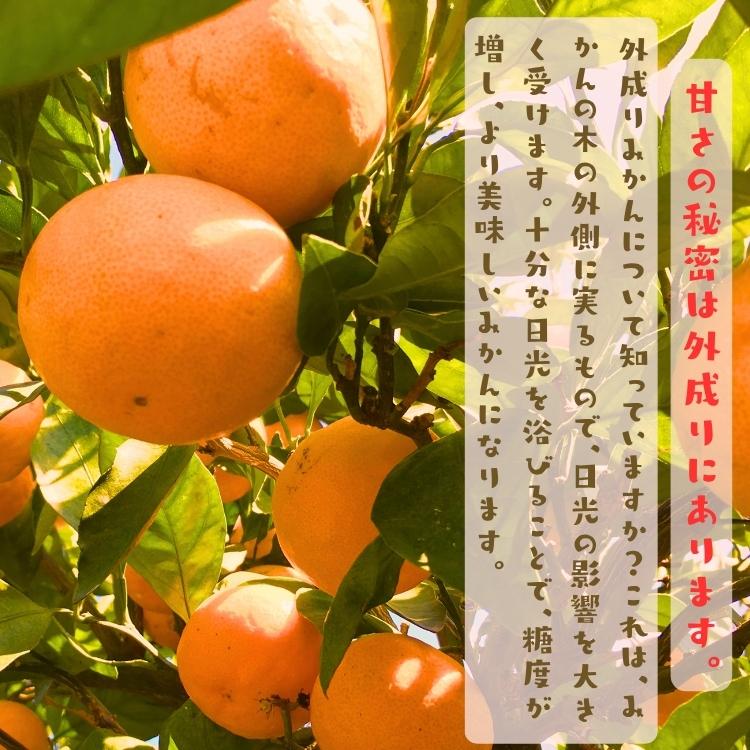 甘さの秘密は外成りにあります。
外成りみかんについて知っていますか?これは、み
かんの木の外側に実るもので、日光の影響を大き
く受けます。十分な日光を浴びることで、糖度が
増し、より美味しいみかんになります。